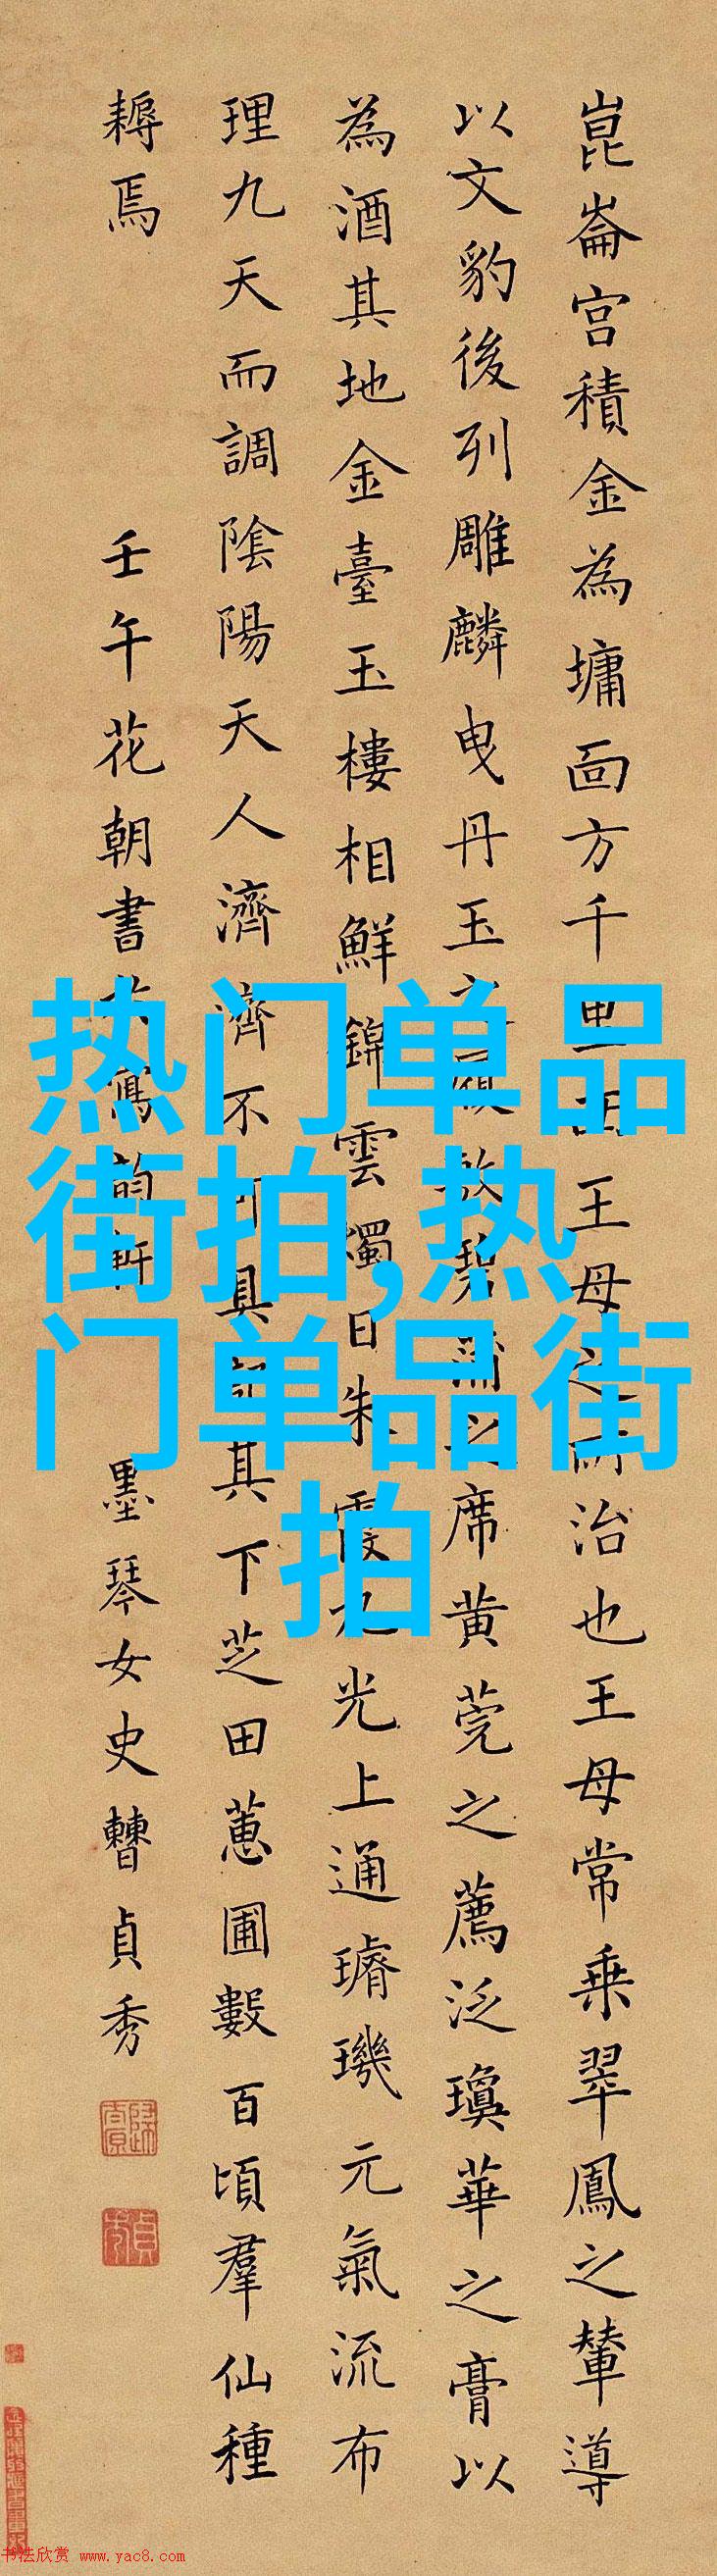 崑崙宫積金為墉面方千里西王母之所治也王母常乗翠鳳之輦導
以文豹後列雕麟曳丹玉之履敷碧蒲之席黄莞之薦泛瓊華之膏以
為酒其地金臺玉樓相鮮錦雲燭日朱霞九光上通璿璣元氣流布
理九天而調陰陽天人濟濟不可具其下芝田蕙圃數百頃羣仙種
耨焉
壬午花朝書於寫韵軒 墨琴女史曹貞秀
热门单品
街拍,热
门单品街
拍
书法欣赏 www.yac8.com